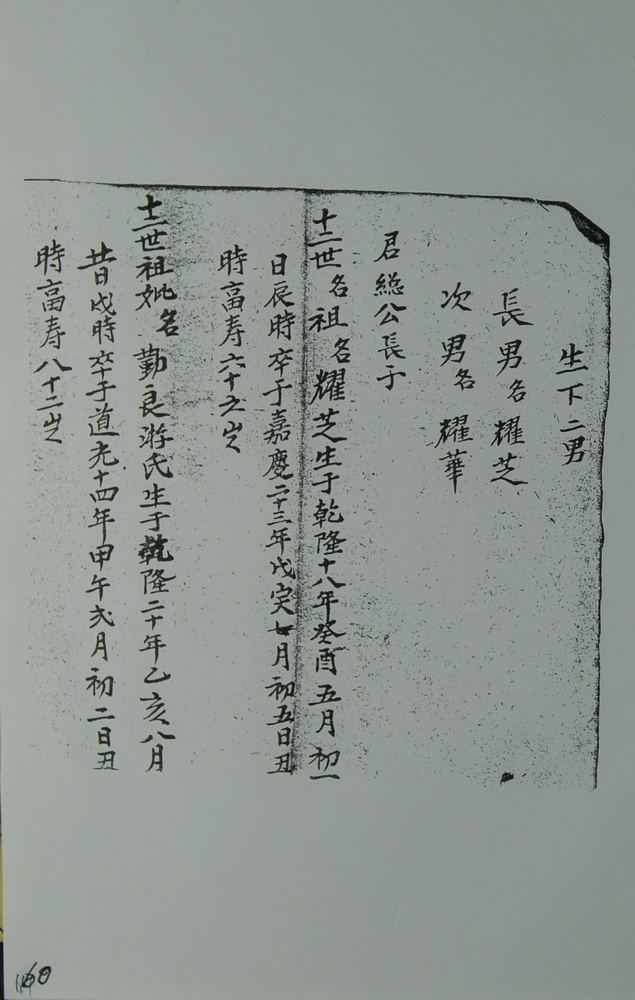 生下二男
長男名耀芝
次男名耀華
君総公長子
十二世名祖名耀芝生于乾隆十八年癸酉五月初一
日辰時卒于嘉慶二十三年戊寅七月初五日丑
時富寿六十五岁
十二世祖妣名勤良游氏生于乾隆二十年乙亥八月
廿日戌時卒于道光十四年甲午弍月初二日丑
時富寿八十二岁
160